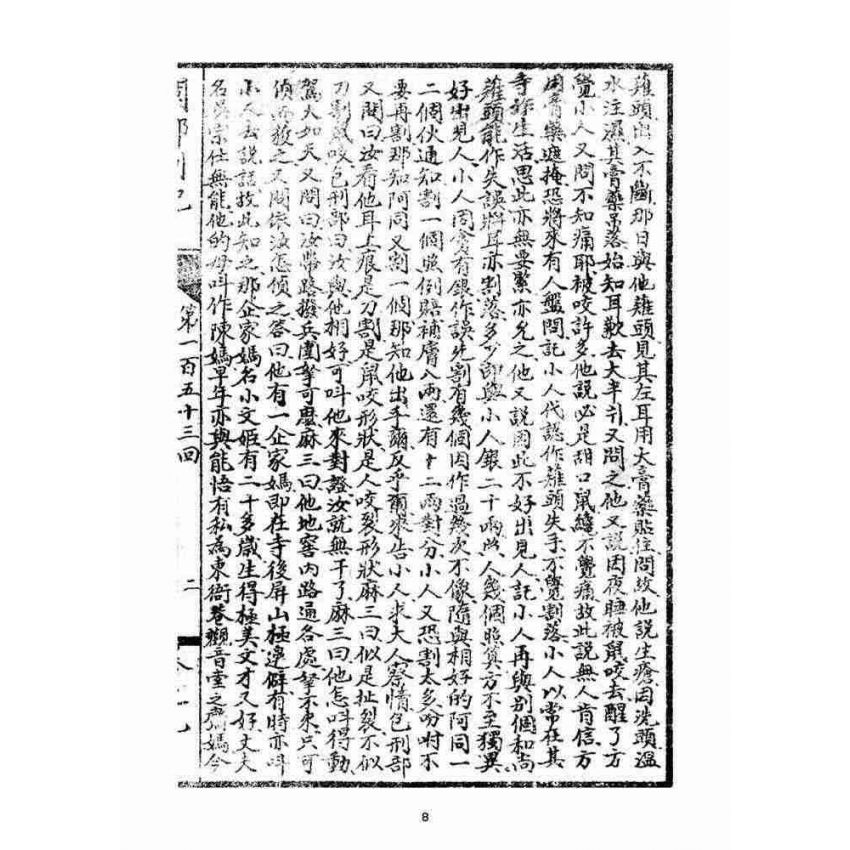 薙頭出入不斷那日與他薙頭見其左耳用大膏藥貼住問故他說生瘡因洗頭溫
水注濕其膏藥吊落始知耳歉去大半引又問之他又說因夜睡被鼠咬去醒了方
覺小人又問不知痛耶被咬許多他說必是甜口鼠纔不覺痛故此說無人肯信方
用膏藥遮掩恐將來有人盤問託小人代認作薙頭失手不覺割落小人以常在其
寺聍生活思此亦無要緊亦允之他又說因此不好出見人託小人再與別個和尚
薙頭能作失誤將耳亦割落多少即與小人銀二十兩以人幾個照算方不至獨異
好出見人小人因貪有銀作誤先割有幾個因作過幾次不像隨與相好的阿同一
二個伙通知割一個照例賠補膚八兩還有十二兩對分小人又恐割太多吩咐不
要再割那知阿同又割一個那知他出乎爾反乎爾來告小人求大人察情包刑部
又問曰汝看他耳上痕是刀割是鼠咬形狀是人咬裂形狀麻三曰似是扯裂不似
刀割鼠咬包刑部曰汝與他相好可叫他來對證汝就無干了麻三曰他怎叫得動
駕大如天又問曰汝帶路撥兵圍拏可麼麻三曰他地窖內路通各處拏不來只可
偵而殺之又問依汝怎偵之答曰他有一企家媽即在寺後屏山極邊僻有時亦叫
小人去說話故此知之那企家媽名小文姬有二十多歲生得極美文才又好丈夫
名吳宗仕無能他的母叫作陳媽早年亦與能悟有私為東衙巷觀音堂之齋媽今
第一百五十三回
二
8